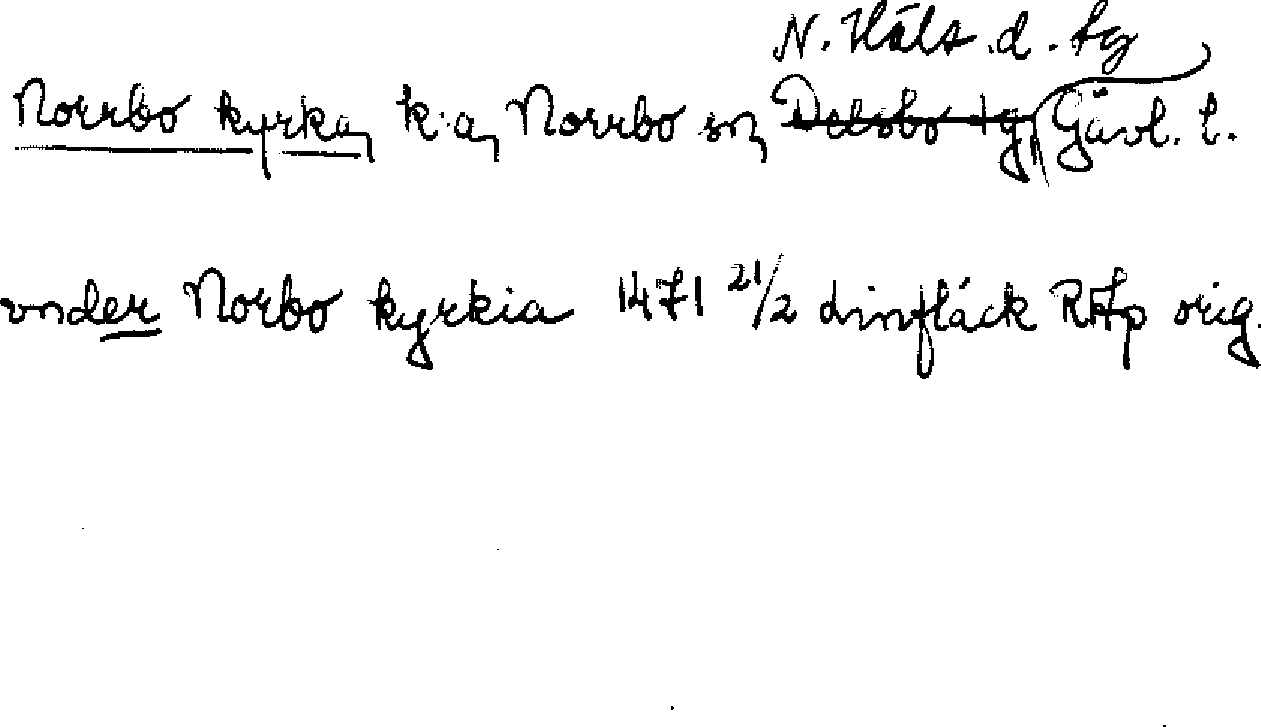 N. Häls. d. tg
Norrbo kyrka, k:a, Norrbo sn, Delsbo tg, Gävl. l.
vnder Norbo kyrkia 1471 21/2 Linfläck RAp orig.